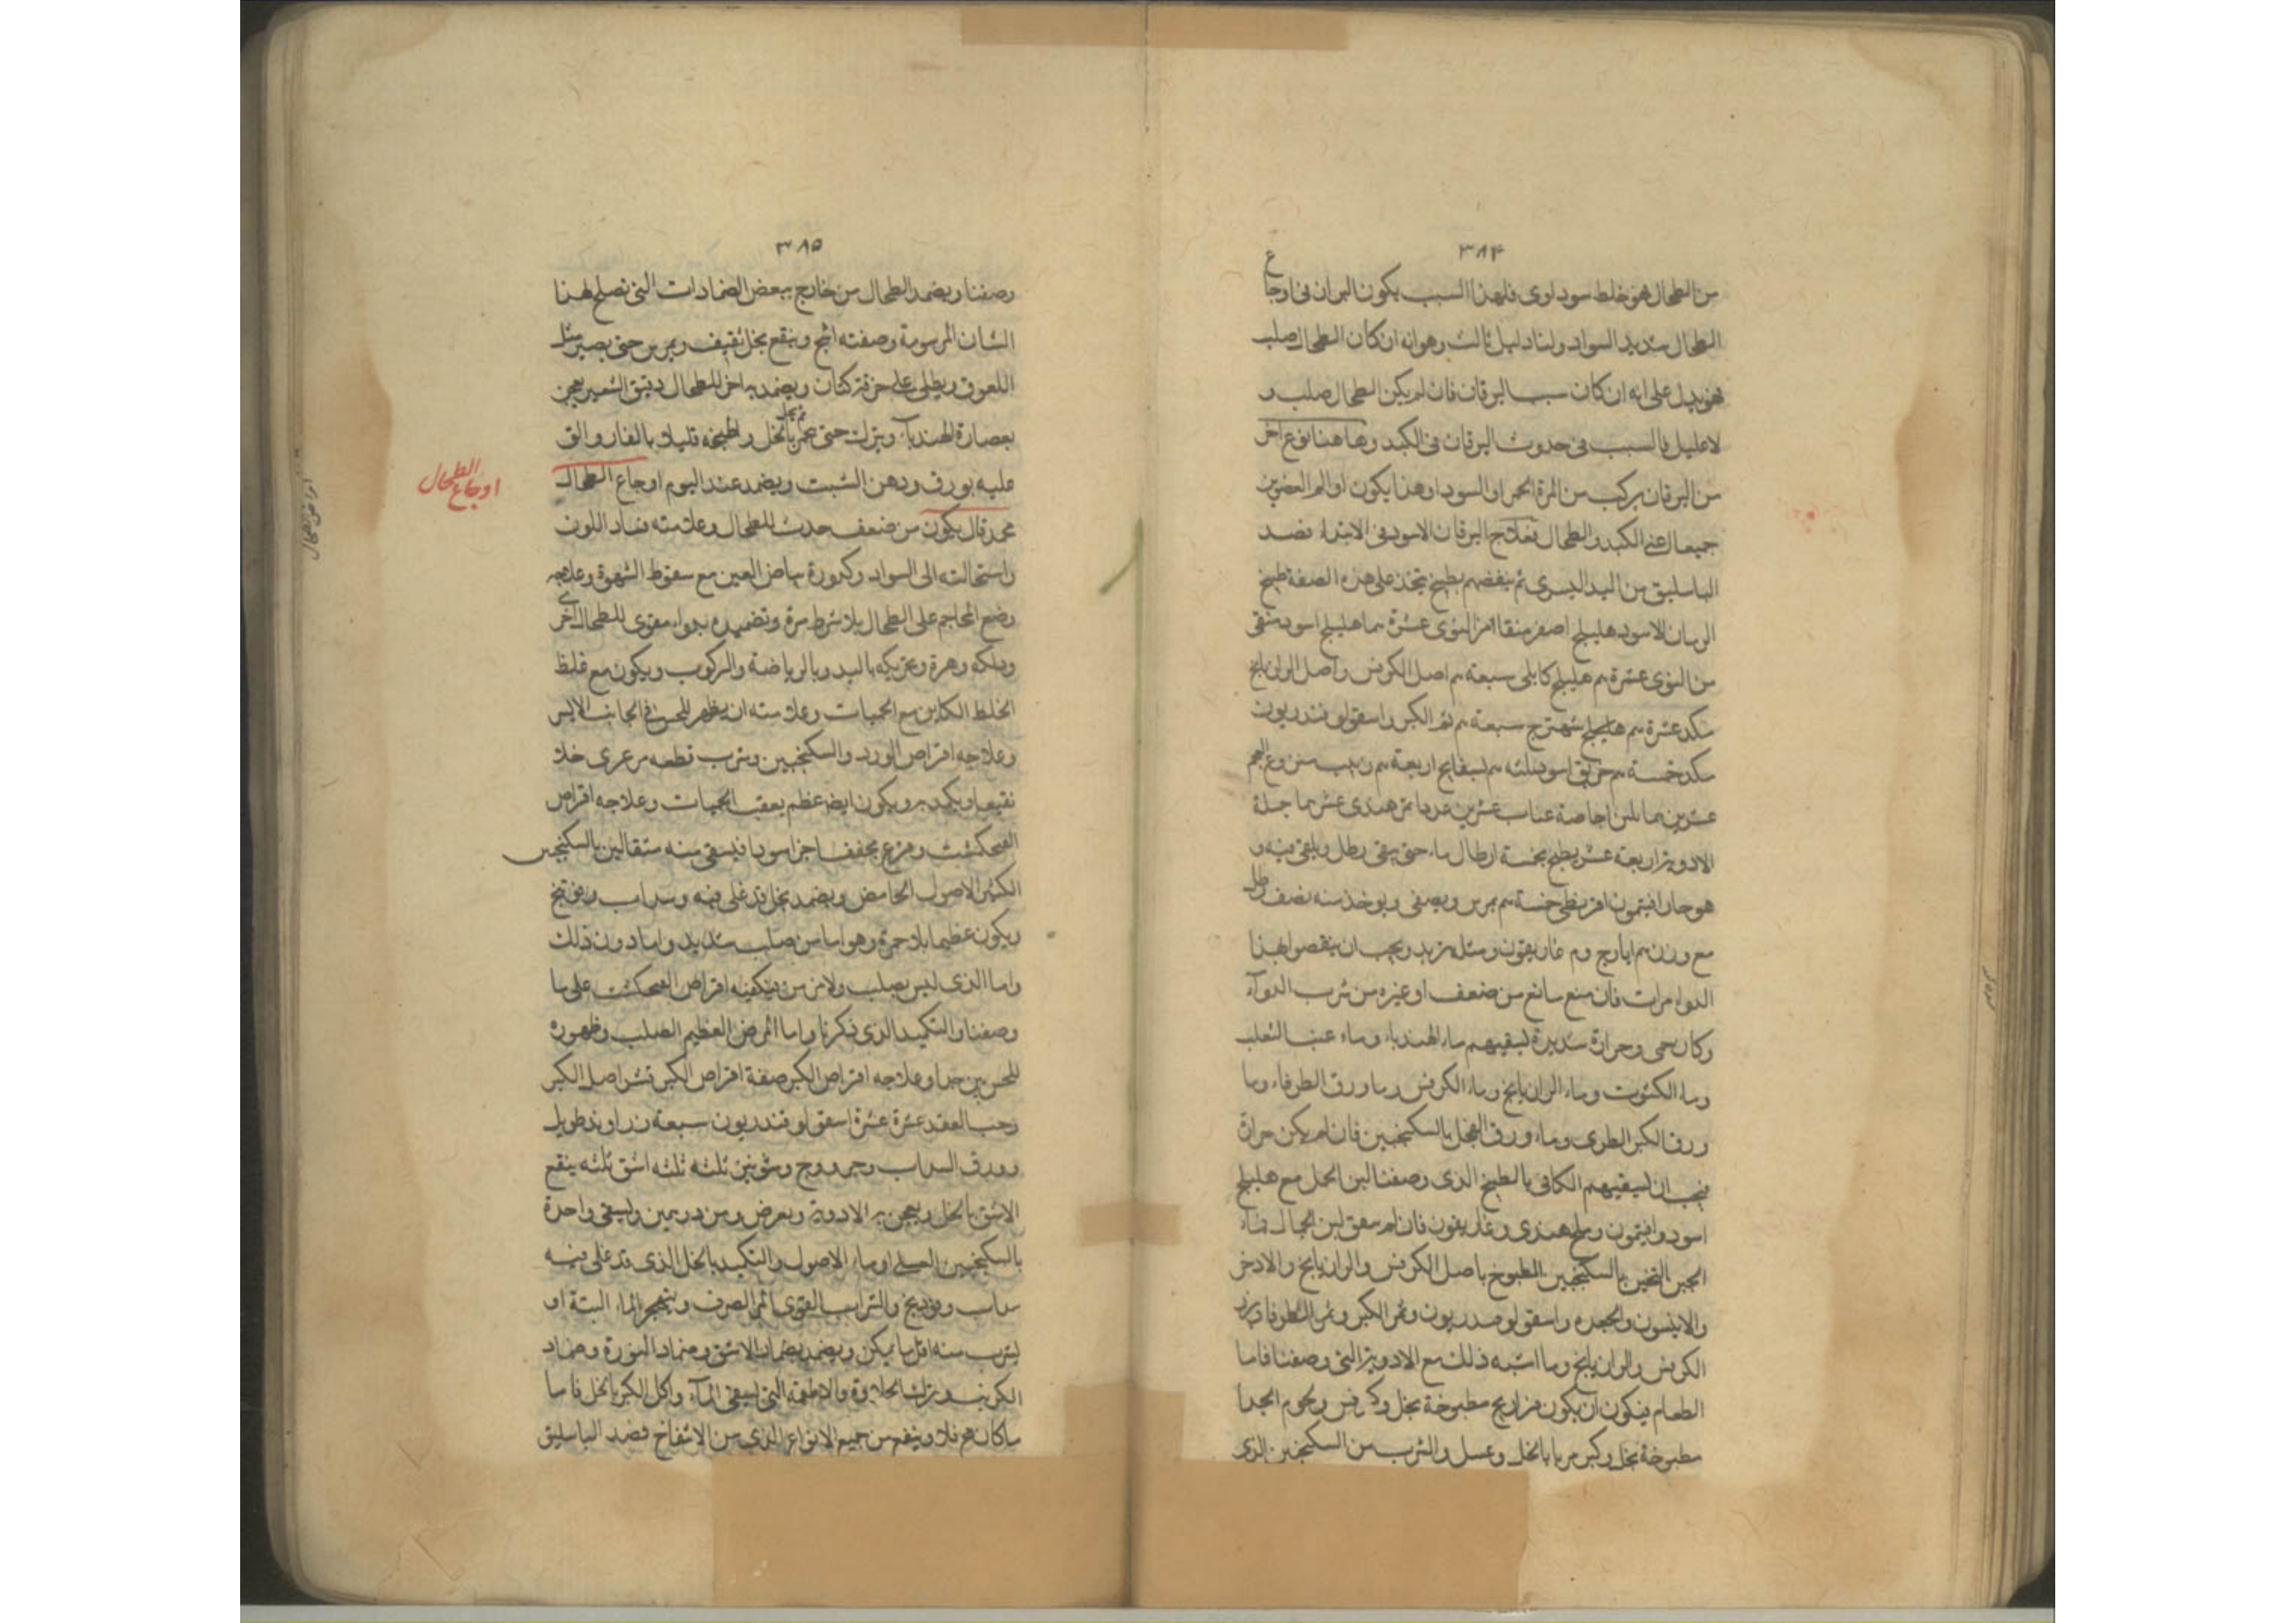 ٣٨٤
من الطحال هو خلط سوداوى فلهذا السبب يكون البراز فى اوجاع
الطحال شديد السواد ولنا دليل ثالث وهو انه ان كان الطحال صلب
فهو يدل على انه ان كان سبب اليرقان فان لم يكن الطحال صلب و
لا عليل فالسبب فى حدوث اليرقان فى الكبد وهاهنا نوع اخر
من اليرقان مركب من المرة الحمرا والسودا وهذا يكون اوالم العضوين
جميعا اعنى الكبد والطحال بعلاج اليرقان الاسود فى الابتداء فصد
الباسليق من اليد اليسرى ثم ينفضهم بطبيخ يتخذ على هذه الصفة طبيخ
اليرقان الاسود هليلج اصفر منقا من النوى عشرة هليلج اسود منقى
من النوى عشرة هليلج كابلى سبعة اصل الكرفس واصل الرازيانج
عشرة هليلج شهترج سبعة ثمر الكبر واسقولوقندريون
خمسة خربق اسود ثلثه بسفايج اربعة زبيب منزوع العجم
عشرين اجاصة عناب عشرين تمر هندى عشر جملة
الادوية اربعة عشر يطبخ بخمسة ارطال ماء حتى يبقى رطل ويلقى فيه و
هو حار افتيمون اقريطى خمسة يمرس ويصفى ويوخذ منه نصف رطل
مع وزن ايارج وم غاريقون ومثله تربد ويجب ان ينقصوا هذا
الدوا مرات فان منع مانع من ضعف او غيره من شرب الدوآء
وكان حمى وحرارة شديدة ليسقيهم ماء الهندباء وماء عنب الثعلب
وماء الكشوت وماء الرازيانج وماء الكرفس وما ورق الطرفاء وما
ورق الكبر الطرى وماء ورق الفجل بالسكنجبين فان لم يكن حرارة
فيجب ان ليسقيهم الكافى بالطبيخ الذى وصفنا لبن الحل مع هليلج
اسود وافتيمون وملح هندى وغاريقون فان لم سعق لبن الجمال فماء
الجبن التخين بالسكنجبين المطبوخ باصل الكرفس والرازيانج والادخر
والانيسون والجعده واسقولوقندريون وثمر الكبر وثمر الطرفا وبزر
الكرفس والرازيانج وما اشبه ذلك مع الادوية التى وصفنا فاما
الطعام فيكون ان يكون فراريج مطبوخة بخل وكرفس ولحوم الجدا
مطبوخة بخل وكبر مربا بالخل وعسل والشرب من السكنجبين الذى
٣٨٥
وصفنا ويضمد الطحال من خارج ببعض الضمادات التى تصلح لهذا
الشان المرسومة وصفته اشج وينقع بخل ثقيف ويمرس حتى يصير مثل
اللعوق ويطلى على خرقة كتان ويضمد به اخر للطحال دقيق الشعير يعجن
بعصارة الهندبآ ويترك حتى يخمر بالخل واطبخه قليلا بالنار والق
عليه بورق ودهن الشبت ويضمد عند اليوم اوجاع الطحال
محمد قال يكون من ضعف حدث للطحال وعلامته فساد اللون
واستحالته الى السواد وكدورة بياض العين مع سقوط الشهوة وعلاجه
وضع المحاجم على الطحال بلا شرط مرة وتضميده بدواء مقوى للطحال اخرى
ودلكه وهزه وتحريكه باليد وبالرياضة والركوب ويكون مع غلظ
الخلط الكاين مع الحميات وعلامته ان يظهر للحس فى الجانب الايسر
وعلاجه اقراص الورد والسكنجبين وشرب قطعه مرعرى خلا
نقيعا ويكمد به ويكون ايضا عظم بعقب الحميات وعلاجه اقراص
الفنجكشت وقرع مجفف اجزا سودا فيسقى منه مثقالين بالسكنجبين
الكثير الاصول الحامض ويضمد بخل قد غلى فيه وسداب وفوتنج
ويكون عظيما بلا حمرة وهو اما من صلب شديد واما دون ذلك
واما الذى ليس بصلب ولا مزمن يكفيه اقراص الفنجكشت على ما
وصفنا والتكميد الذى ذكرنا واما المرض العظيم الصلب وظهوره
للحس بين جدا وعلاجه اقراص الكبر صفة اقراص الكبر قشر اصل الكبر
وحب الفقد عشرة عشرة اسقولوقندريون سبعة زراوند طويل
وورق السداب وجر ووج وشونيز ثلثه ثلثه اشق ثلثه ينقع
الاشق بالخل ويعجن به الادوية ويقرض وزن درهمين وليسقى واحدة
بالسكنجبين العسلى او ماء الاصول والتكميد بالخل الذى قد غلى فيه
سداب وفوذنج والشراب القوى المر الصرف ويهجر الماء البتة او
ليشرب منه اقل ما يمكن ويضمد بضماد الاشق وضماد النورة وضماد
الكرنب وترك الحلاوة والاطعمة التى ليسقى المآء واكل الكبر بالخل فاما
ما كان هم فلا وينفع من جميع الانواع الذى من الانتفاخ فصد الباسليق
اوجاع الطحال